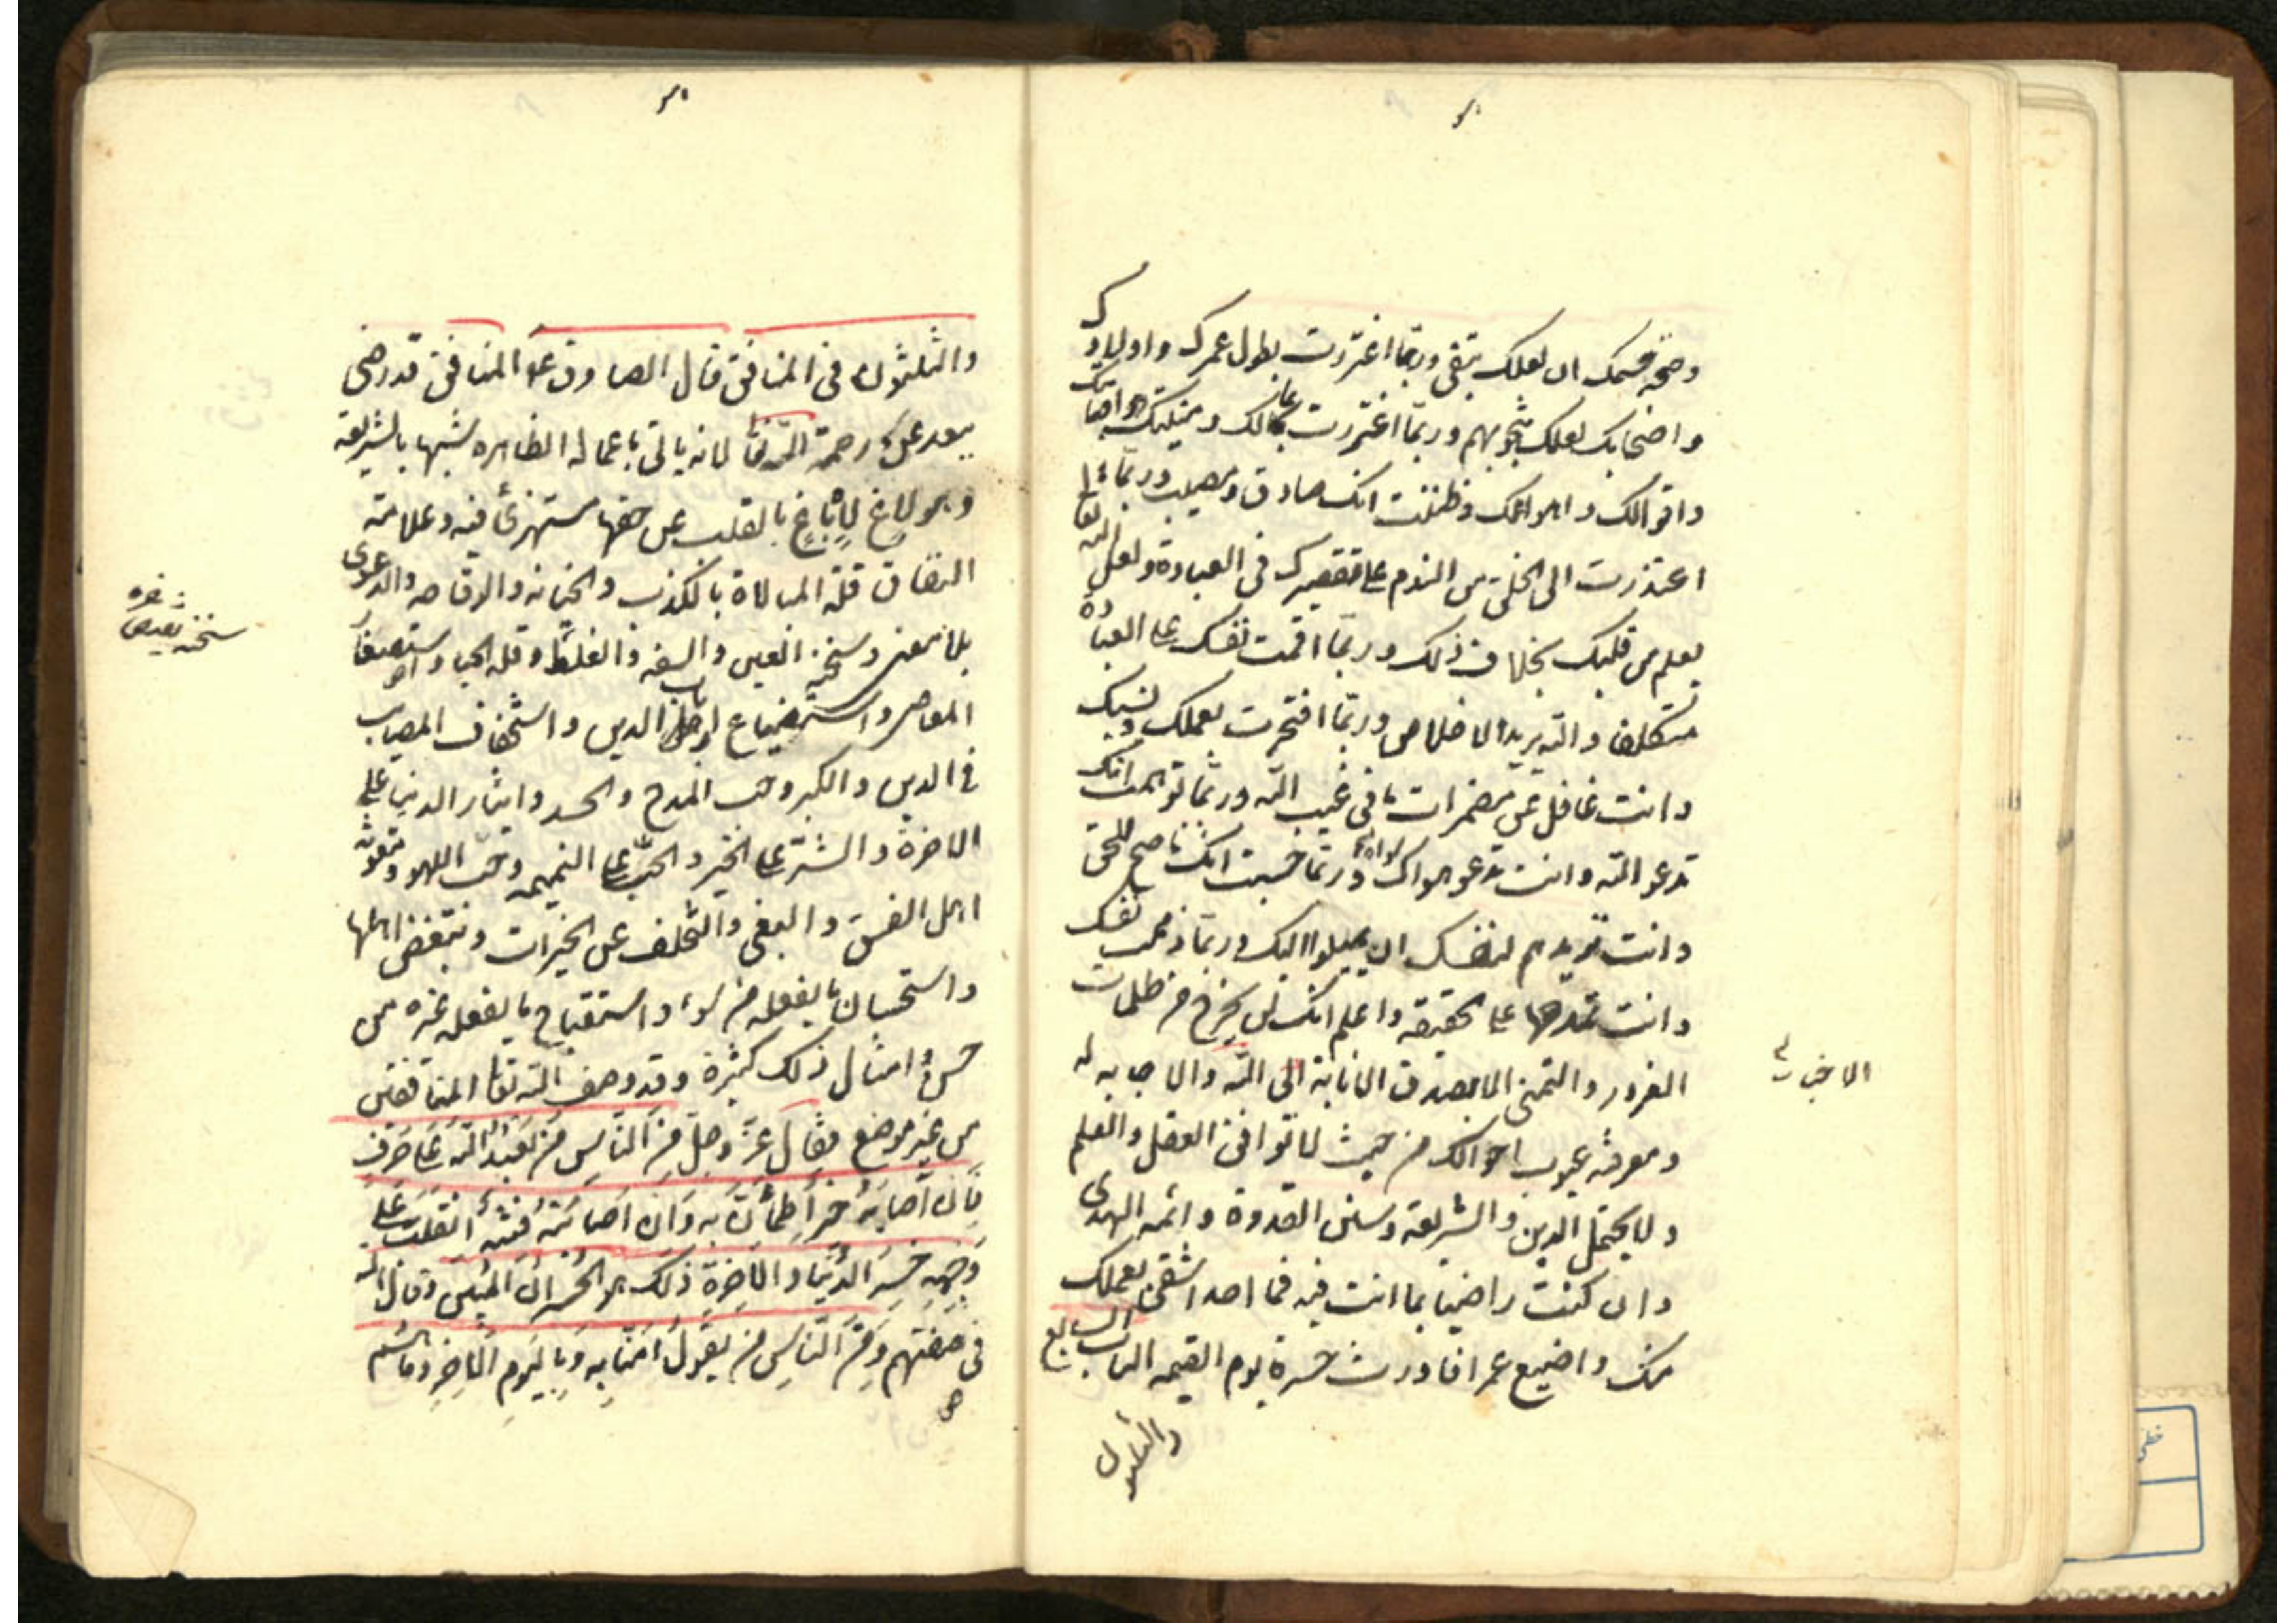 وصحة جسمك ان لعلك تبقى وربما اغتررت بطول عمرك واولادك
واصحابك لعلك تنجو بهم وربما اغتررت بمالك ومنيتك
واقوالك واهوالك وظننت انك صادق ومصيب وربما
اعتذرت الى الخلق من الندم على تقصيرك فى العبادة ولعل الله
يعلم من قلبك بخلاف ذلك وربما اقمت نفسك على العبادة
متكلفا والله يريد الاخلاص وربما افتخرت بعملك ونسبك
وانت غافل عن مضمرات ما فى غيب الله وربما توهمت انك
تدعو الله وانت تدعو سواه وربما حسبت انك ناصح للخلق
وانت تريدهم لنفسك ان يميلوا اليك وربما ذممت نفسك
وانت تمدحها على الحقيقه واعلم انك لن تخرج من ظلمات
الغرور والتمنى الا بصدق الانابة الى الله والاخبات له
الاخبات
ومعرفة عيوب احوالك من حيث لا توافق العقل والعلم
ولا يحتمل الدين والشريعة وسنن القدوة وائمه الهدى
وان كنت راضيا بما انت فيه فما احد اشقى بعملك
منك واضيع عمرا فاورث حسرة يوم القيمه الباب السابع
والثلثون
والثلثون فى المنافق قال الصادق ع المنافق قد رضى
ببعده عن رحمة الله تعا لانه ياتى باعماله الظاهره شبيها بالشريعة
وهو لاغ باغ بالقلب عن حقها مستهزئ فيه وعلامة
النفاق قلة المبالاة بالكذب والخيانه والوقاحه والدعوى
بلا معنى وسخنة العين والسفه والغلط وقلة الحياء واستصغار
نسخه
المعاصى واستضياع ارباب الدين واستخفاف المصايب
فى الدين والكبر وحب المدح والحسد وايثار الدنيا على
الاخرة والشر على الخير والحث على النميمه وحب اللهو ومعونة
اهل الفسق والبغى والتخلف عن الخيرات وتنقص اهلها
واستحسان ما يفعله من سوء واستقباح ما يفعله غيره من
حسن وامثال ذلك كثيرة وقد وصف الله تعا المنافقين
من غير موضع فقال عز وجل من الناس من يعبد الله على حرف
فان اصابه خير اطمأن به وان اصابته فتنة انقلب على
وجهه خسر الدنيا والاخرة ذلك هو الخسران المبين وقال الله
فى صفتهم ومن الناس من يقول امنا به وباليوم الاخر وما هم